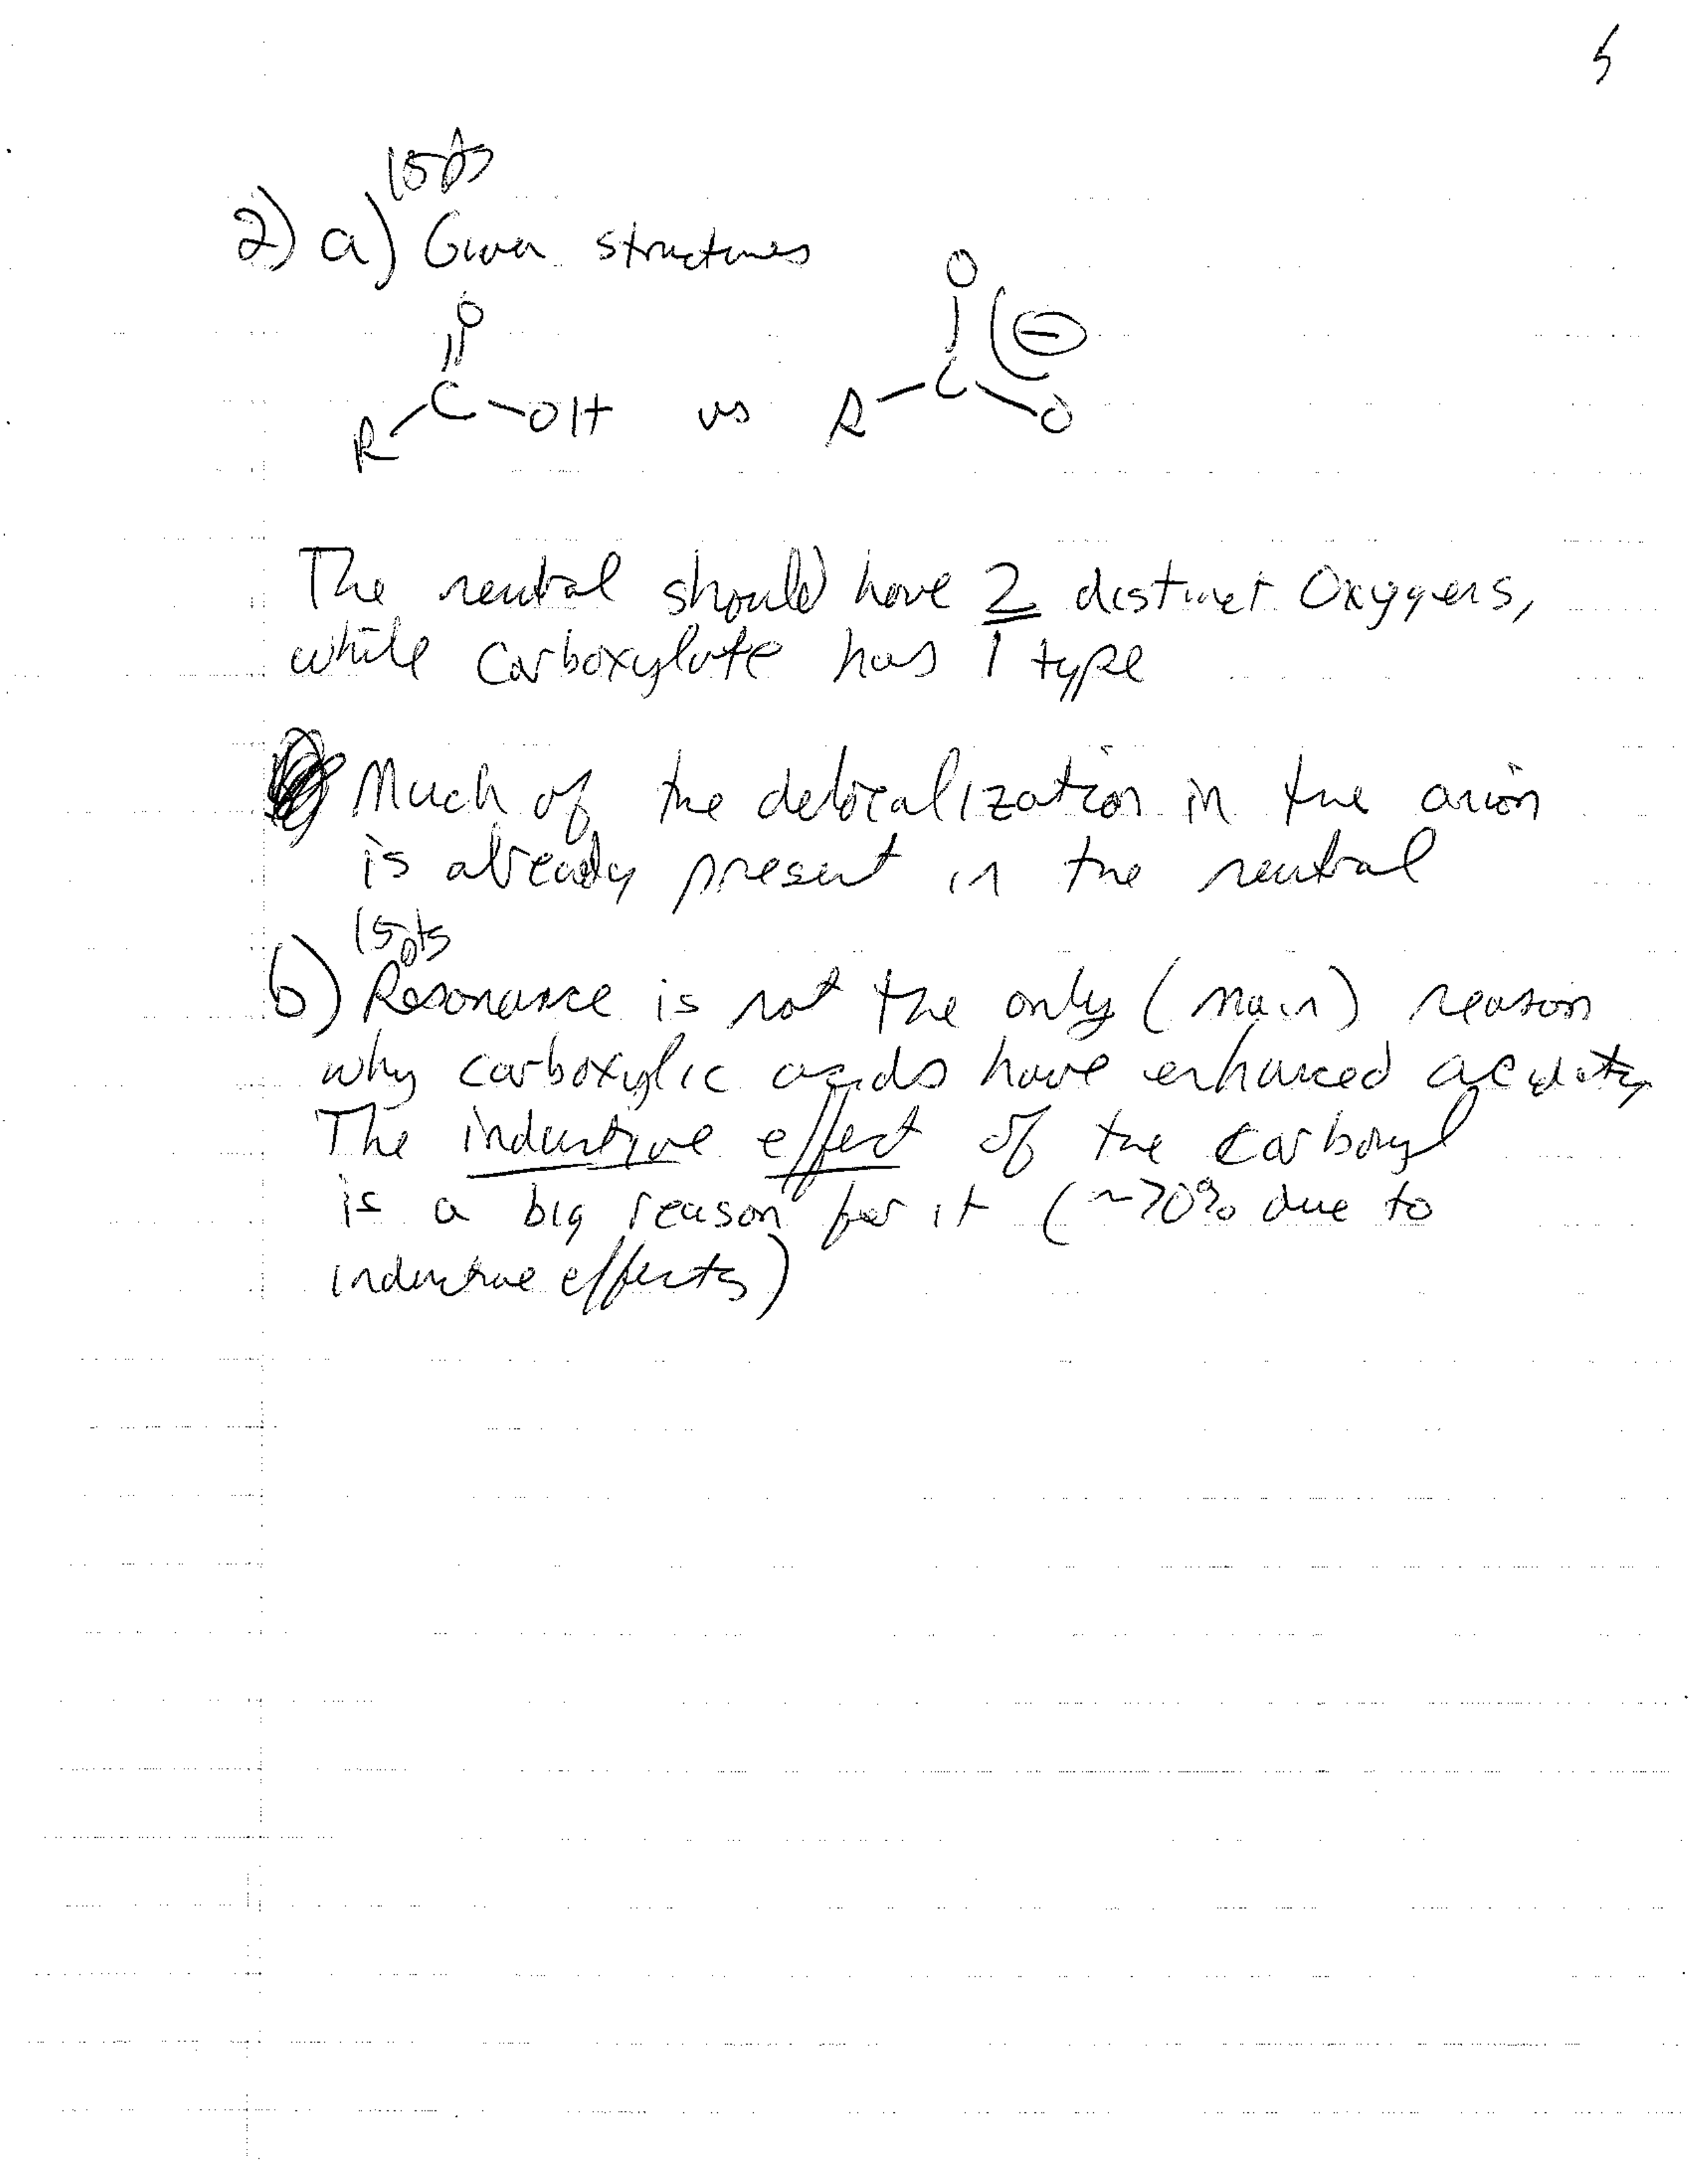 5
15pts
2) a) Given structures
O O
C ⊖
R OH vs R C O
The neutral should have 2 distinct Oxygens,
while carboxylate has 1 type
Much of the delocalization in the anion
is already present in the neutral
15pts
b) Resonance is not the only (main) reason
why carboxylic acids have enhanced acidity
The inductive effect of the carbonyl
is a big reason for it (~70% due to
inductive effects)